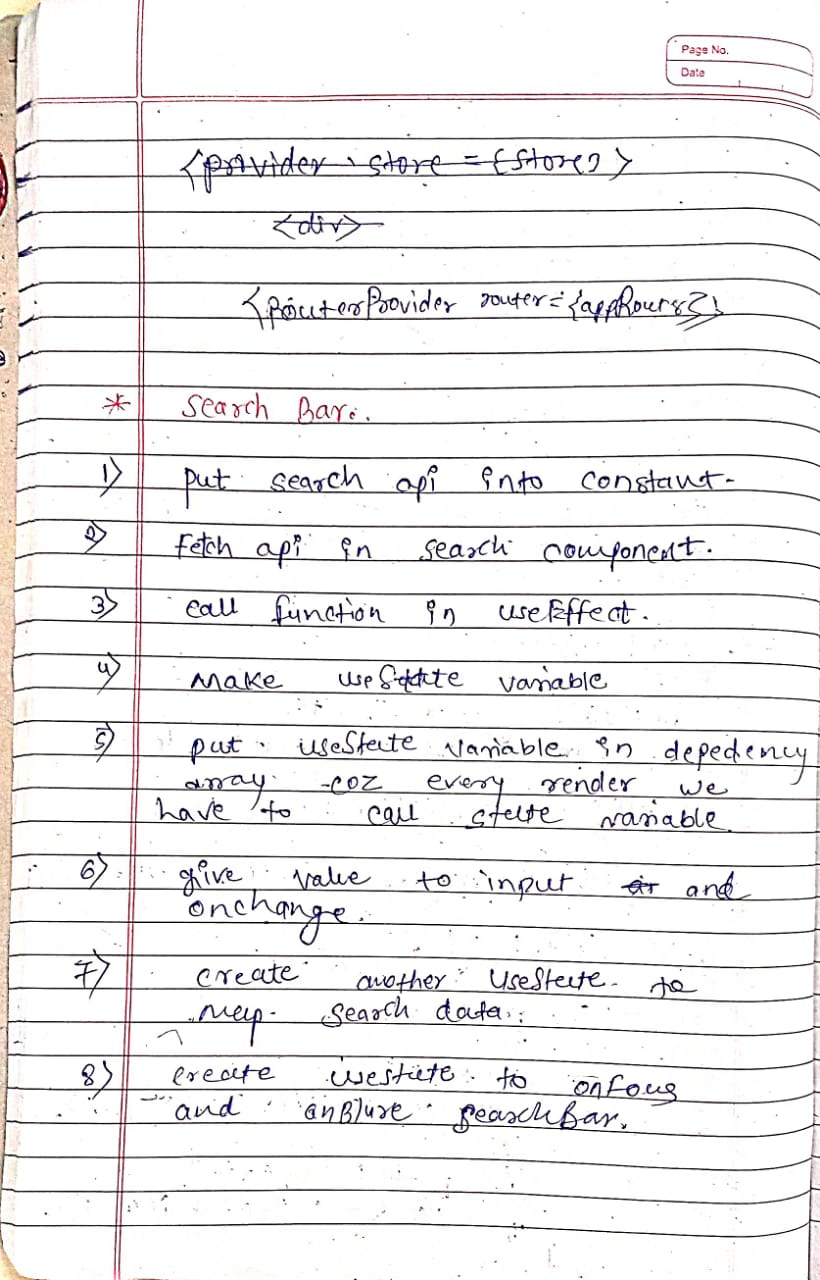 Page No.
Date
<provider store = {store}>
<div>
<RouterProvider router={appRours}>
* Search Bar.
1) put search api into constant.
2) Fetch api in search component.
3) call function in useEffect.
4) Make useState variable
5) put useState variable in depedency
array. -coz every render we
have to call state variable
6) give value to input and
onchange.
7) create another useState to
map search data.
8) create usestate to onfous
and onBlure searchBar.